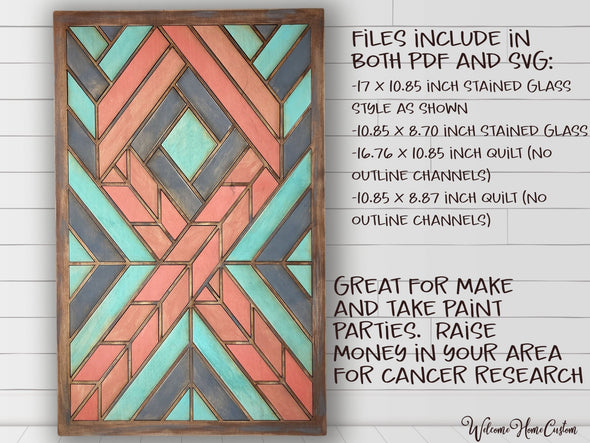 FILES INCLUDE IN
BOTH PDF AND SVG:
-17 X 10.85 INCH STAINED GLASS
STYLE AS SHOWN
-10.85 X 8.70 INCH STAINED GLASS
-16.76 X 10.85 INCH QUILT (NO
OUTLINE CHANNELS)
-10.85 X 8.87 INCH QUILT (NO
OUTLINE CHANNELS)
GREAT FOR MAKE
AND TAKE PAINT
PARTIES. RAISE
MONEY IN YOUR AREA
FOR CANCER RESEARCH
WelcomeHomeCustom